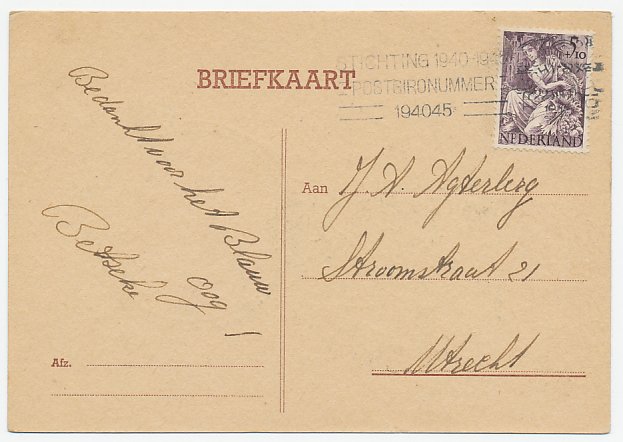 STICHTING 1940-19
POSTGIRONUMMER
194045
5
+10
NEDERLAND
BRIEFKAART
Bedankt voor het Blauw
oog!
Betseke
Aan J. A. Agterberg
Stroomstraat 21
Utrecht
Afz.